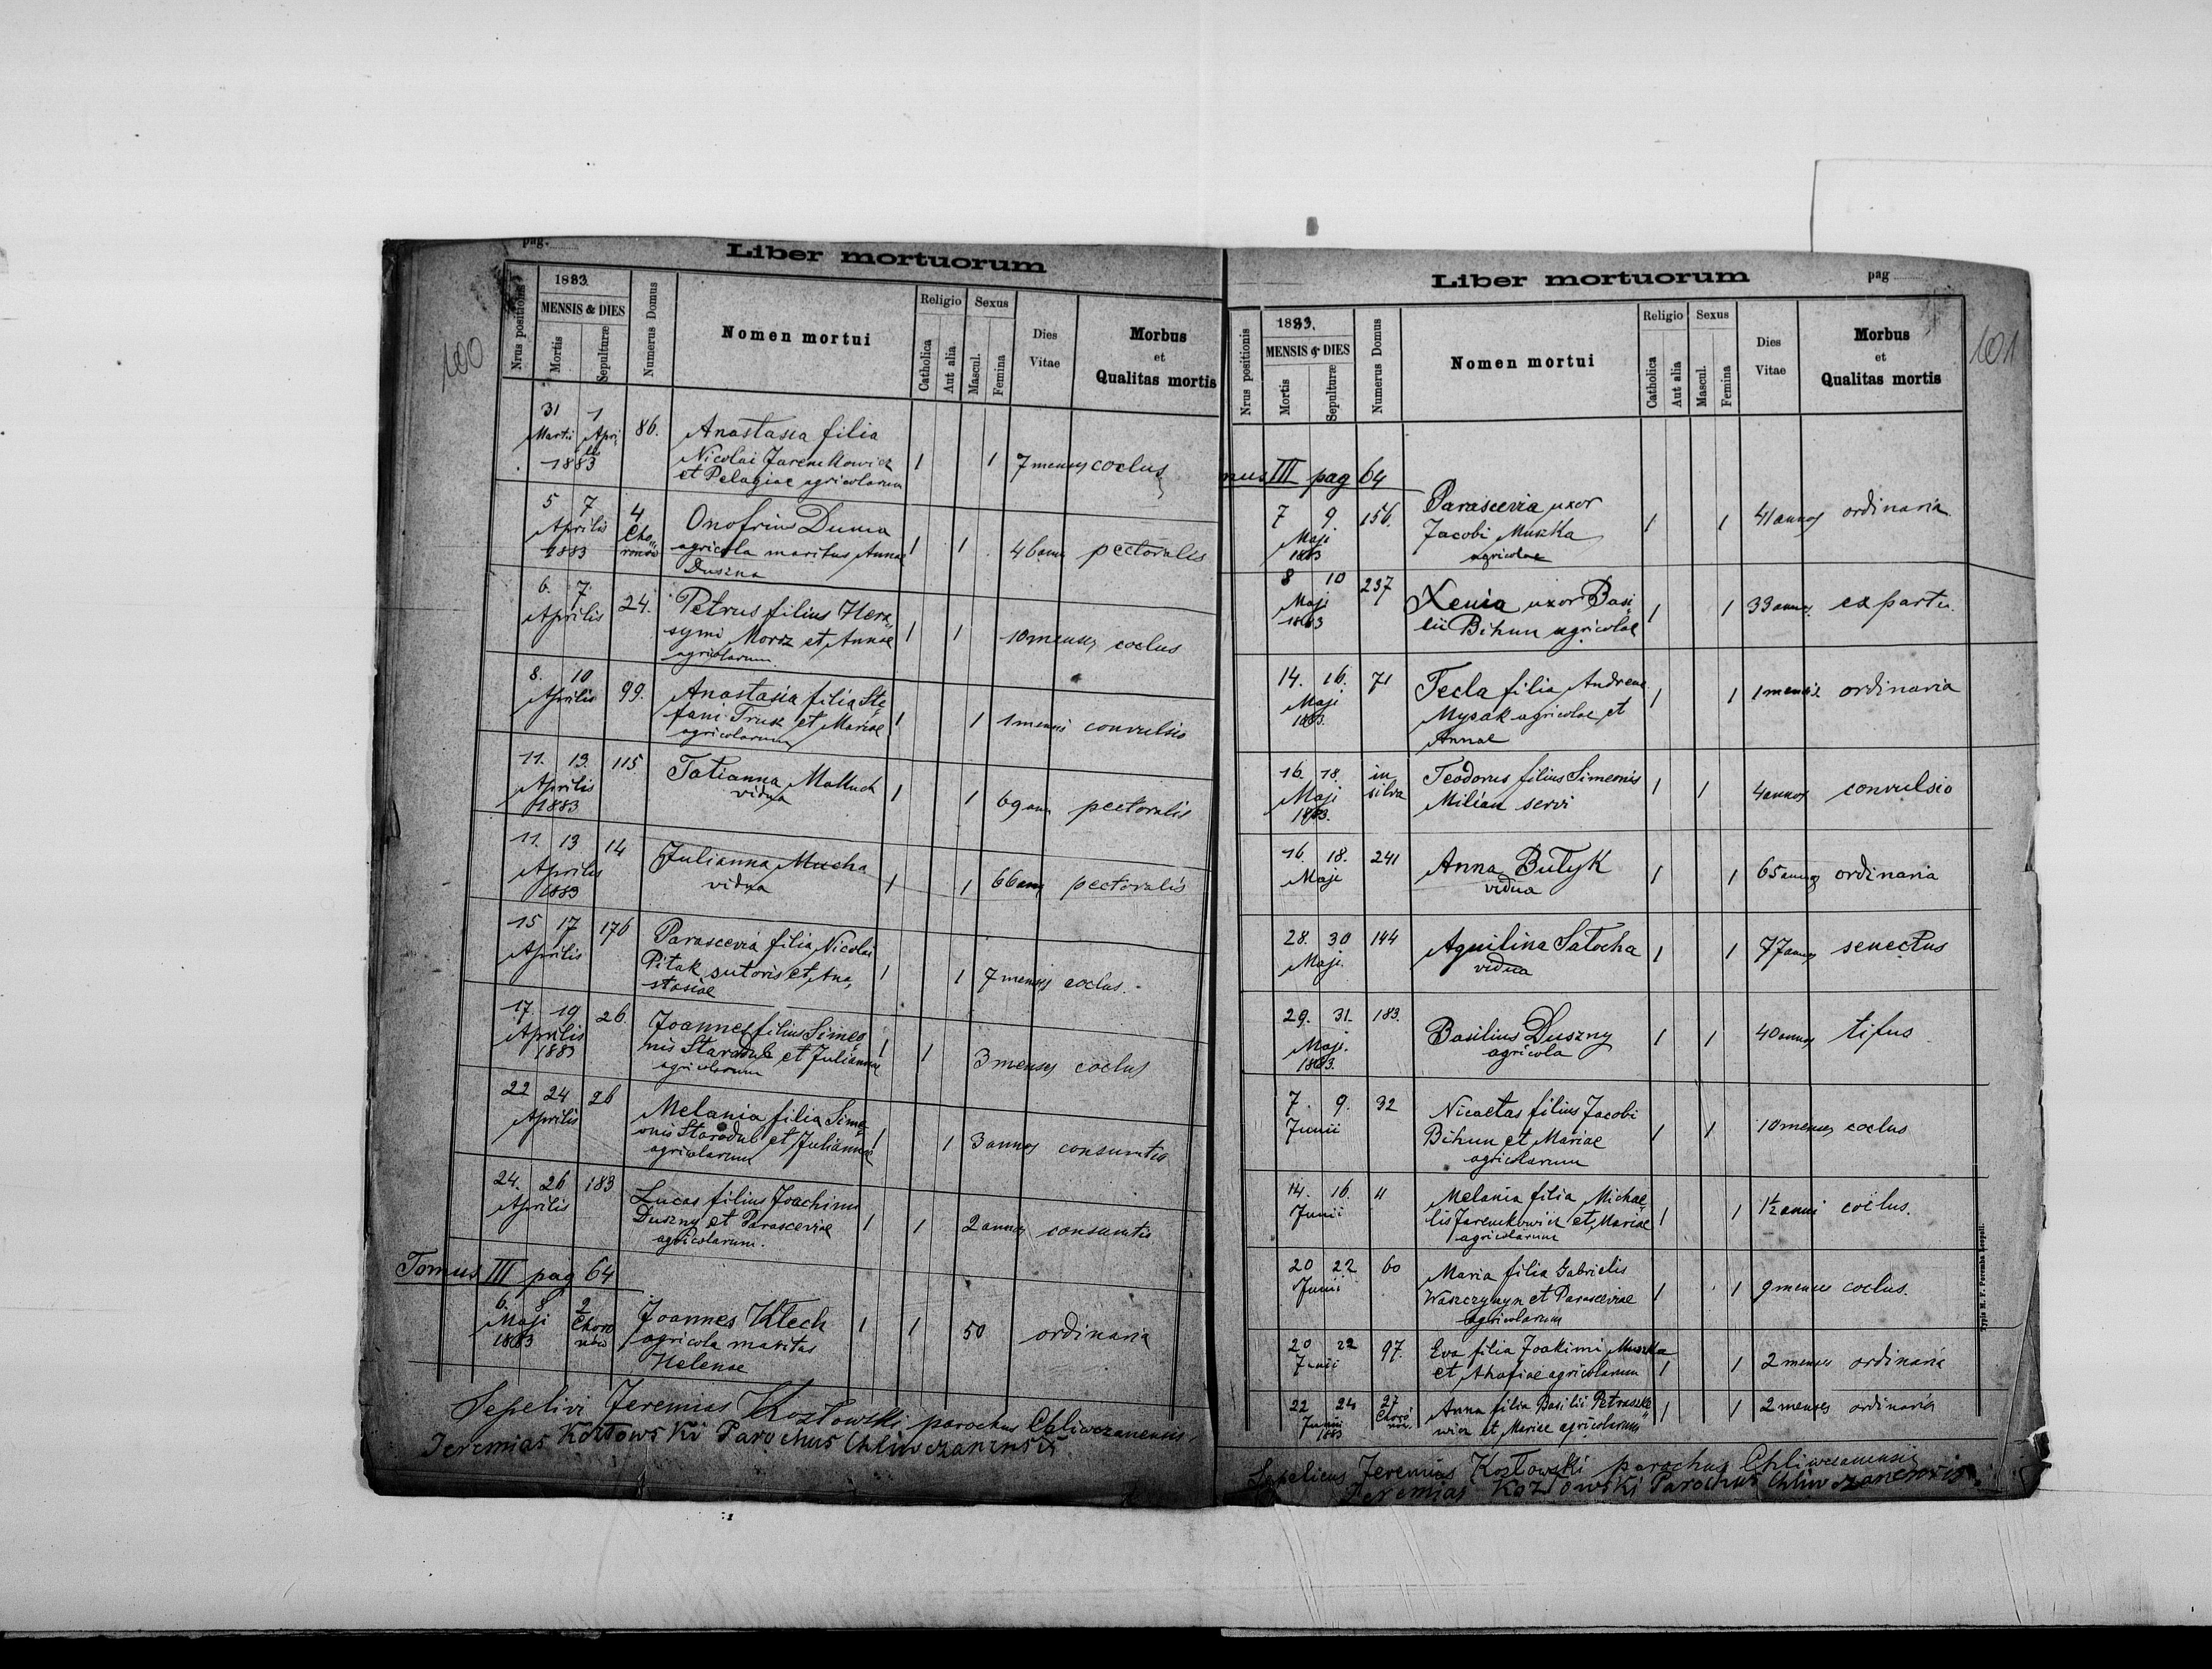 pag.
Liber mortuorum
100
Nrus positionis
1883.
MENSIS & DIES
Mortis
Sepulturæ
Numerus Domus
Nomen mortui
Religio
Catholica
Aut alia
Sexus
Mascul.
Femina
Dies
Vitae
Morbus
et
Qualitas mortis
31 1 86. Anastasia filia
Martii Apri
lis Nicolai Jaremkowicz 1 1 7 menses coclus
1883 et Pelagiae agricolarum
5 7 4 Onofrius Duma
Aprilis Cho„ agricola maritus Annae 1 1 46 ann pectoralis
1883 ronów Duszna
6. 7. 24. Petrus filius Hera„
Aprilis symi Moroz et Annae 1 1 10 menses coclus
agricolarum.
8. 10 99. Anastasia filia Ste
Aprilis fani Trusz et Mariae 1 1 1 mensis convulsio
agricolarum
11. 13. 115 Tatianna Malluch
Aprilis vidua 1 1 69 ann pectoralis
1883
11. 13 14 Julianna Mucha
Aprilis vidua 1 1 66 ann pectoralis
1883
15 17 176 Parascevia filia Nicolai
Aprilis Pitak sutoris et Ana„ 1 1 7 menses coclus.
stasiae
17. 19 26. Joannes filius Simeo
Aprilis nis Starodub et Julianna 1 1 3 menses coclus
1883 agricolarum
22 24 26 Melania filia Sime„
Aprilis onis Starodub et Julianna 1 1 3 annos consumtio
agricolarum
24. 26 183 Lucas filius Joachimi
Aprilis Duszny et Parasceviae 1 1 2 annos consumtio
agricolarum.
Tomus III pag 64
6. 8 2 Joannes Klech
Maji Choro agricola maritus 1 1 50 ordinaria
1883 nów Helenae
Sepelivi Jeremias Kozłowski parochus Chliwczanensis
Jeremias Kozłowski Parochus Chliwczanensis
Liber mortuorum
pag
101
Nrus positionis
1883.
MENSIS & DIES
Mortis
Sepulturæ
Numerus Domus
Nomen mortui
Religio
Catholica
Aut alia
Sexus
Mascul.
Femina
Dies
Vitae
Morbus
et
Qualitas mortis
mus III pag 64
7 9. 156. Parascevia uxor
Maji Jacobi Muszka 1 1 41 annos ordinaria
1883 agricolae
8 10 237 Xenia uxor Basi
Maji lii Bihun agricolae 1 1 33 annos ex partu.
1883
14. 16. 71 Tecla filia Andreae
Maji Mysak agricolae et 1 1 1 mensis ordinaria
1883. Annae
16. 18. in Teodorus filius Simeonis
Maji silva Milian servi 1 1 4 annos convulsio
1883.
16. 18. 241 Anna Bulyk
Maji vidua 1 1 65 annos ordinaria
28. 30 144 Aquilina Satocha
Maji. vidua 1 1 77 annos senectus
29. 31. 183. Basilius Duszny
Maji. agricola 1 1 40 annos tifus
1883.
7. 9. 32 Nicaetas filius Jacobi
Junii Bihun et Mariae 1 1 10 menses coclus
agricolarum
14. 16. 11 Melania filia Michae„
Junii lis Jaremkowicz et Mariae 1 1 1½ anni coclus.
agricolarum
20 22 60 Maria filia Gabrielis
Junii Waszczyszyn et Parasceviae 1 1 9 menses coclus.
agricolarum
20 22 97. Eva filia Joakimi Muszka
Junii et Ahafiae agricolarum 1 1 2 menses ordinaria
22 24 27 Anna filia Basilii Petraszke
Junii Choro wicz et Mariae agricolarum 1 1 2 menses ordinaria
1883 nów.
Typis M. F. Poremba Leopoli.
Jeremias Kozłowski parochus Chliwczanensis
Jeremias Kozłowski Parochus Chliwczanensis.